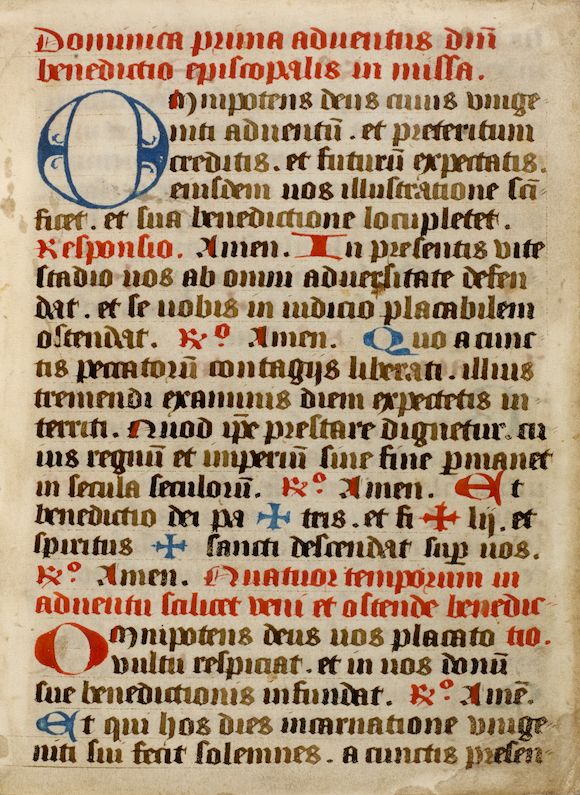 Dominica prima aduentus dn̄i
benedictio episcopalis in missa.
Omnipotens deus cuius vnige
niti aduentū . et preteritum
creditis . et futurū expectatis .
eiusdem uos illustratione sc̄i
ficet . et sua benedictione locupletet .
Responsio. Amen. In presentis vite
stadio uos ab omni aduersitate defen
dat . et se uobis in iudicio placabilem
ostendat. ℟º Amen. Quo a cunc
tis peccatorū contagijs liberati . illius
tremendi examinis diem expectetis in
territi. Quod ip̄e prestare dignetur. cu
ius regnū et imperiū sine fine ꝑmanet
in secula seculorū. ℟º Amen. Et
benedictio dei pa ✠ tris . et fi ✠ lij . et
spiritus ✠ sancti descendat suꝑ uos.
℟º Amen. Quatuor temporum in
aduentu scilicet veni et ostende benedic
Omnipotens deus uos placato tio.
vultu respiciat . et in uos donū
sue benedictionis infundat. ℟º Amē.
Et qui hos dies incarnatione vnige
niti sui fecit solemnes . a cunctis presen